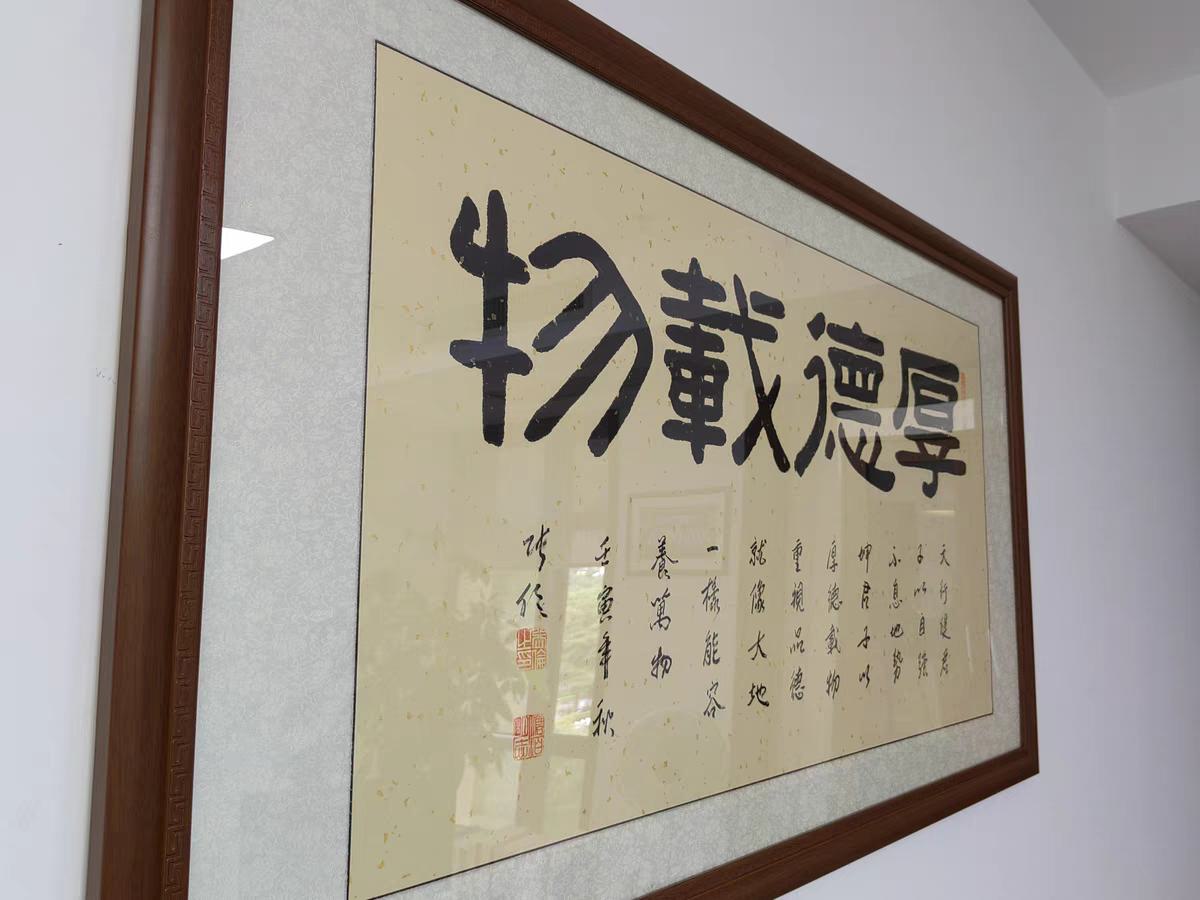 厚德載物
天行健君
子以自強
不息地勢
坤君子以
厚德載物
重視品德
就像大地
一樣能容
養萬物
壬寅年秋